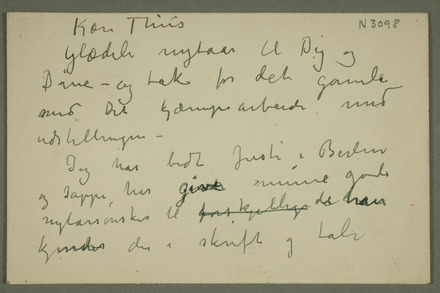 N3098
Kære Thiis
Glædeli nytaar til Dig og
Dine – og tak for det gamle
med det kjæmpe arbeide med
udstillingen –
Jeg har bedt Justi i Berlin
og give mine gode
nytårsønsker til forskjellige de har
der i skrift og tale